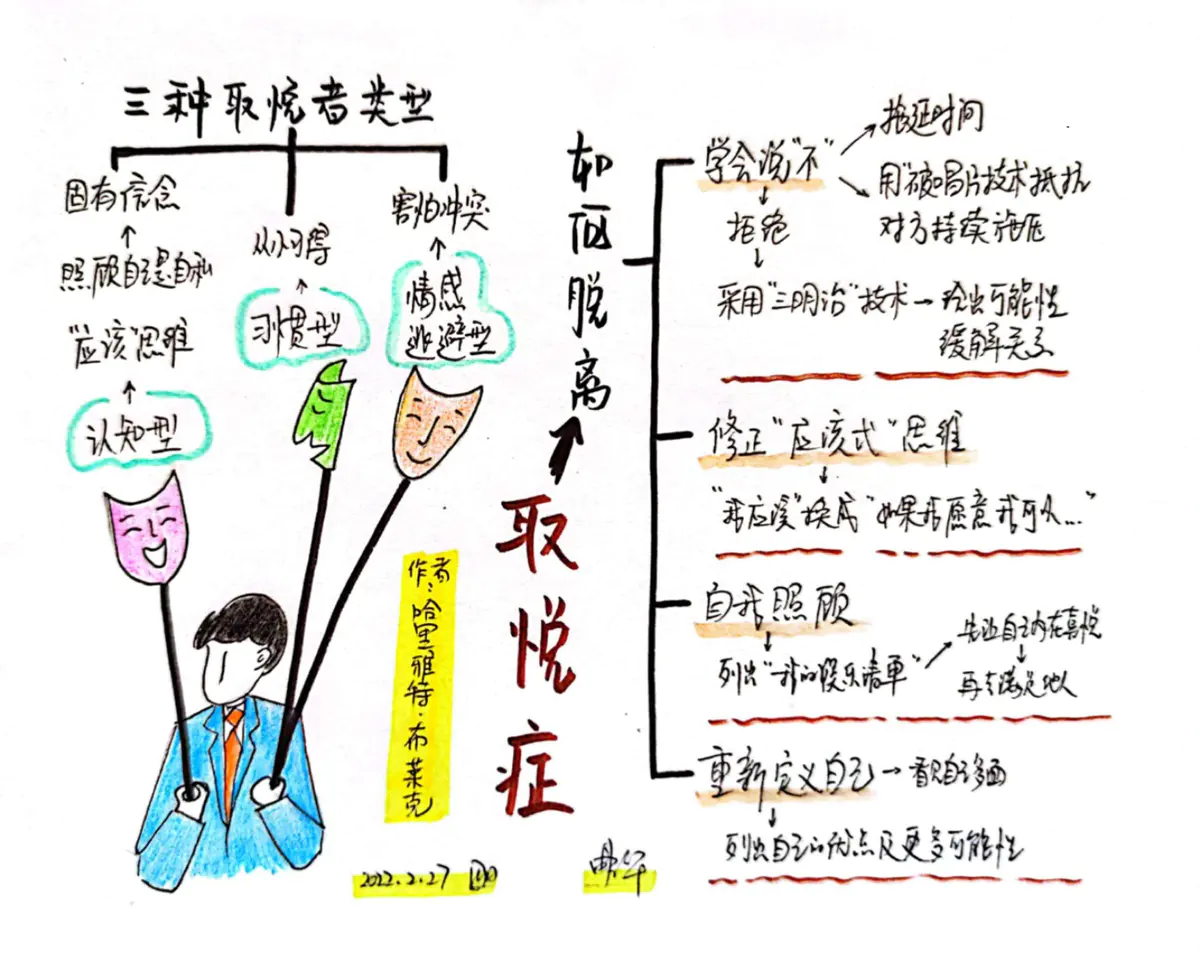 三种取悦者类型
固有信念
照顾自己是自私
"应该"思维
认知型
从小习得
习惯型
害怕冲突
情感
逃避型
作者:哈里雅特·布莱克
取悦症
如何脱离
学会说"不"
拖延时间
用"破唱片技术抵抗
对方持续施压
拒绝
采用"三明治"技术→给出可能性
缓解关系
修正"应该式"思维
"我应该"换成"如果我愿意我可以..."
自我照顾
列出"我的娱乐清单"
先让自己内在喜悦
再去满足他人
重新定义自己→看见自己多面
列出自己的优点及更多可能性
2022.2.27